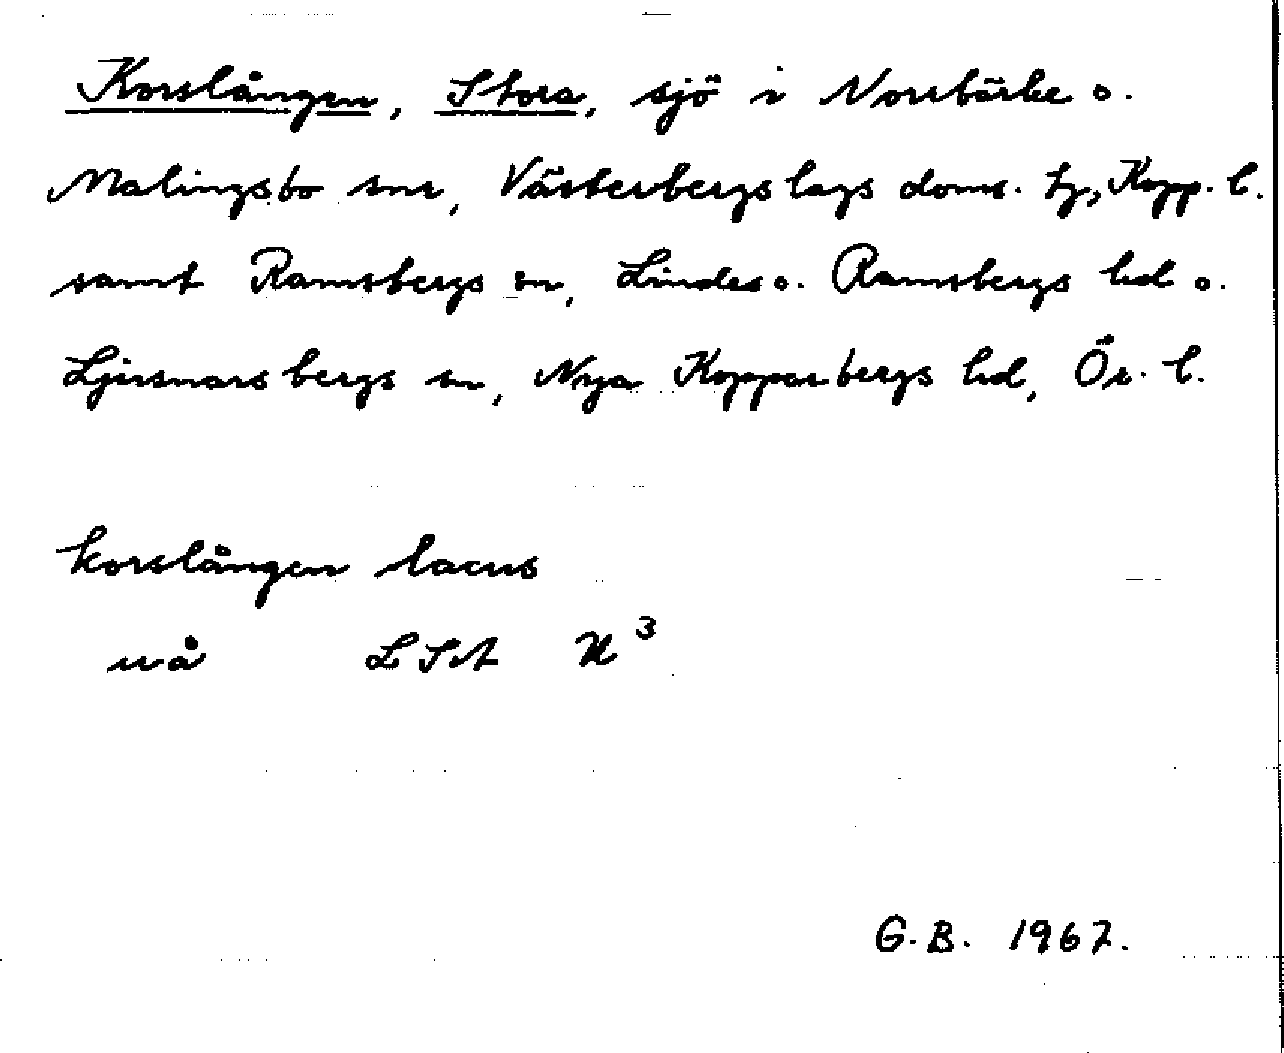 Korslången, Stora, sjö i Norrbärke o.
Malingsbo snr, Västerbergslags doms. tg, Kopp. l.
samt Ramsbergs sn, Lindes o. Ramsbergs hd o.
Ljusnarsbergs sn, Nya Kopparbergs hd, Ör. l.
korslången lacus
uå LSA
G.B. 1967.